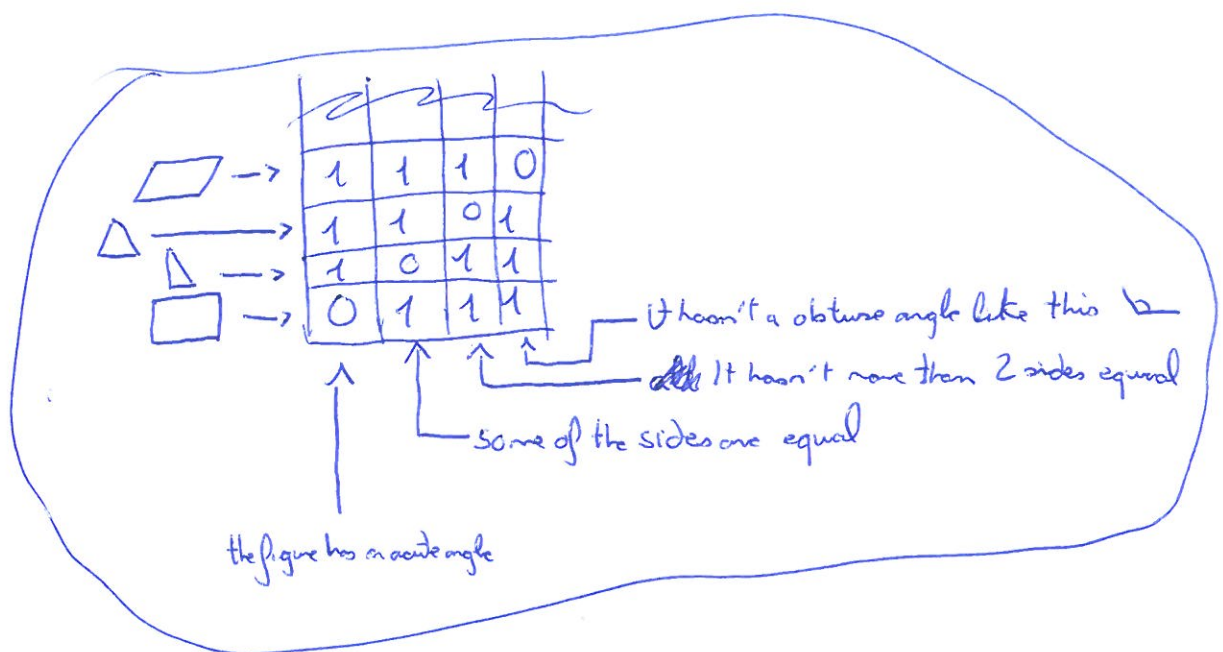 1 1 1 0
1 1 0 1
1 0 1 1
0 1 1 1
it hasn't a obtuse angle like this
It hasn't more than 2 sides equal
some of the sides are equal
the figure has an acute angle